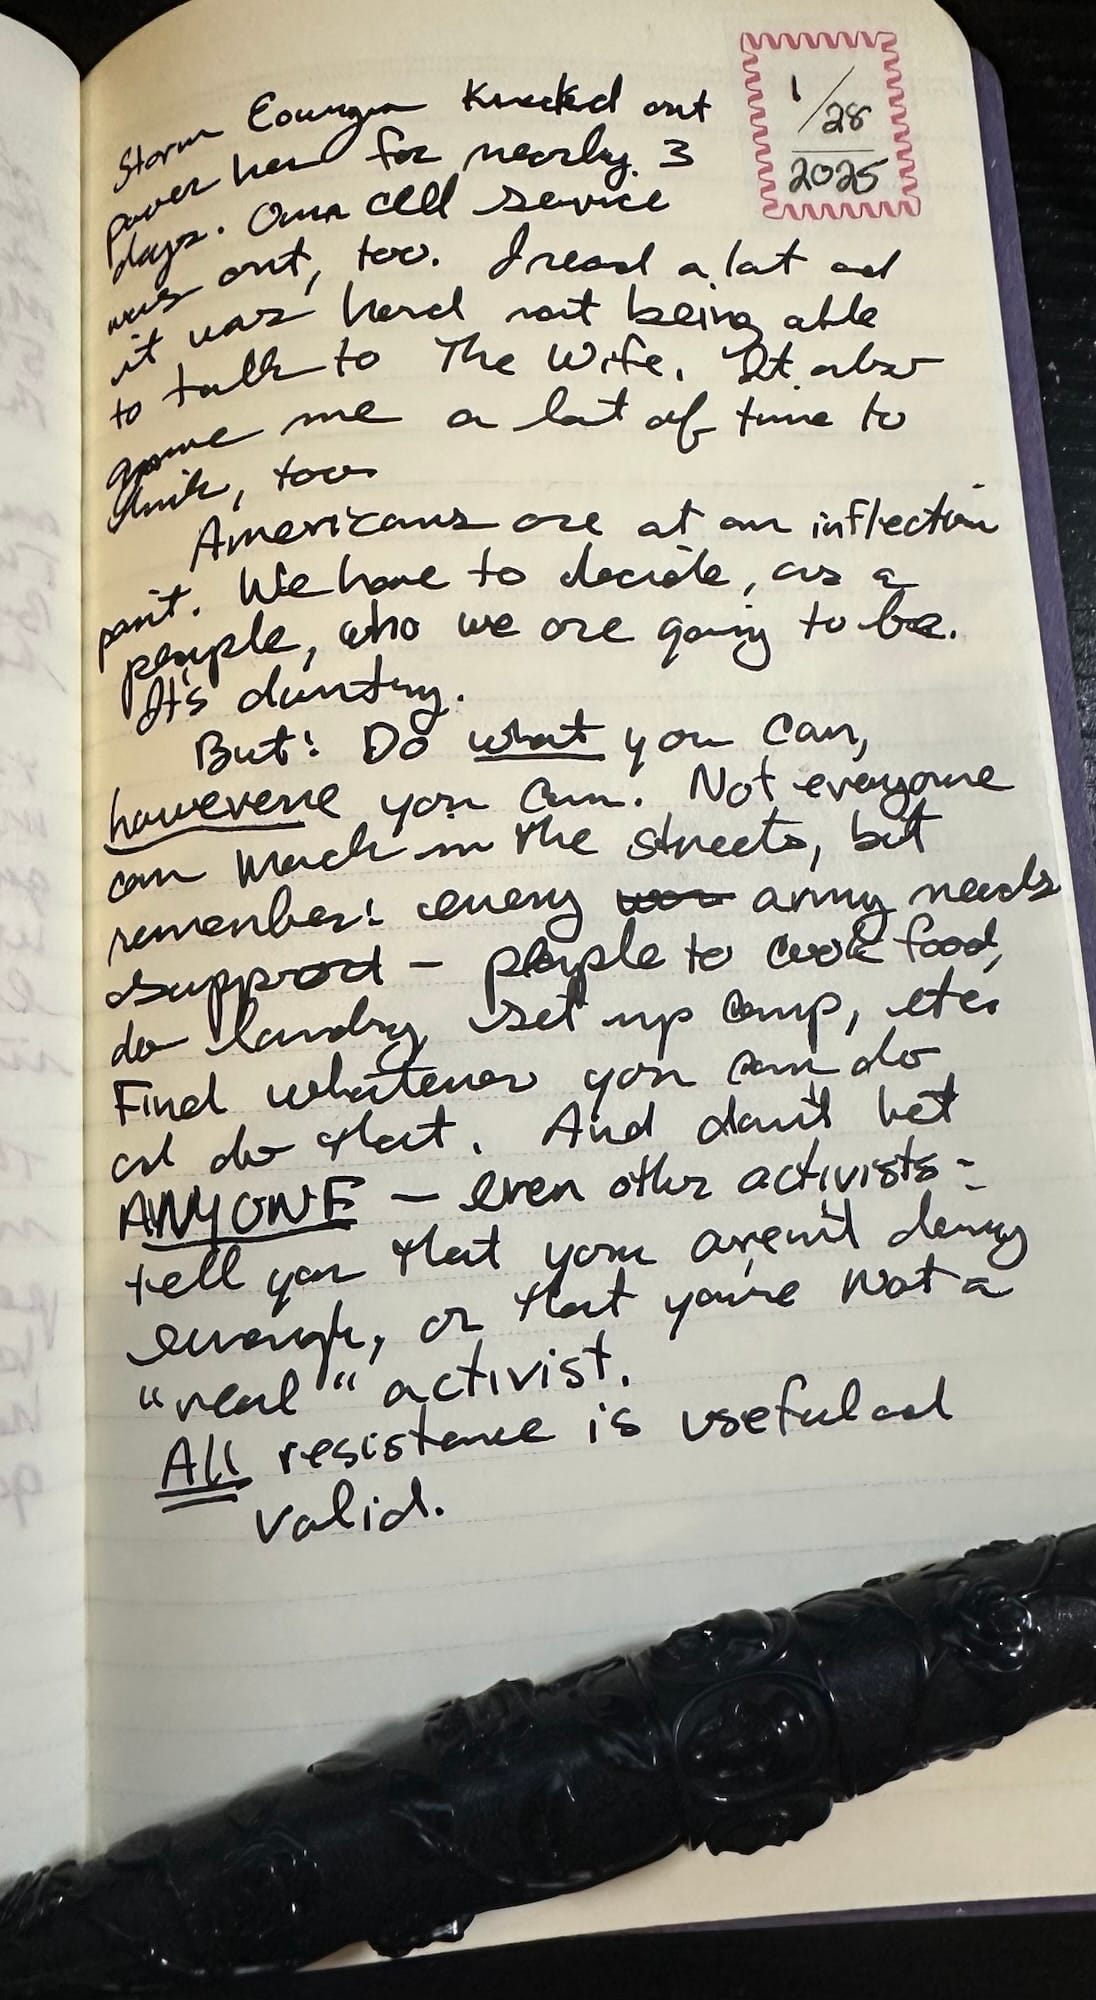 1/28
2025
Storm Eowyn knocked out
power here for nearly 3
days. Our cell service
was out, too. I read a lot and
it was hard not being able
to talk to The Wife. It also
gave me a lot of time to
think, too.
Americans are at an inflection
point. We have to decide, as a
people, who we are going to be.
It's daunting.
But: Do what you can,
however you can. Not everyone
can march in the streets, but
remember: every army needs
support – people to cook food,
do laundry, set up camp, etc.
Find whatever you can do
and do that. And don't let
ANYONE – even other activists –
tell you that you aren't doing
enough, or that you're not a
"real" activist.
All resistance is useful and
valid.